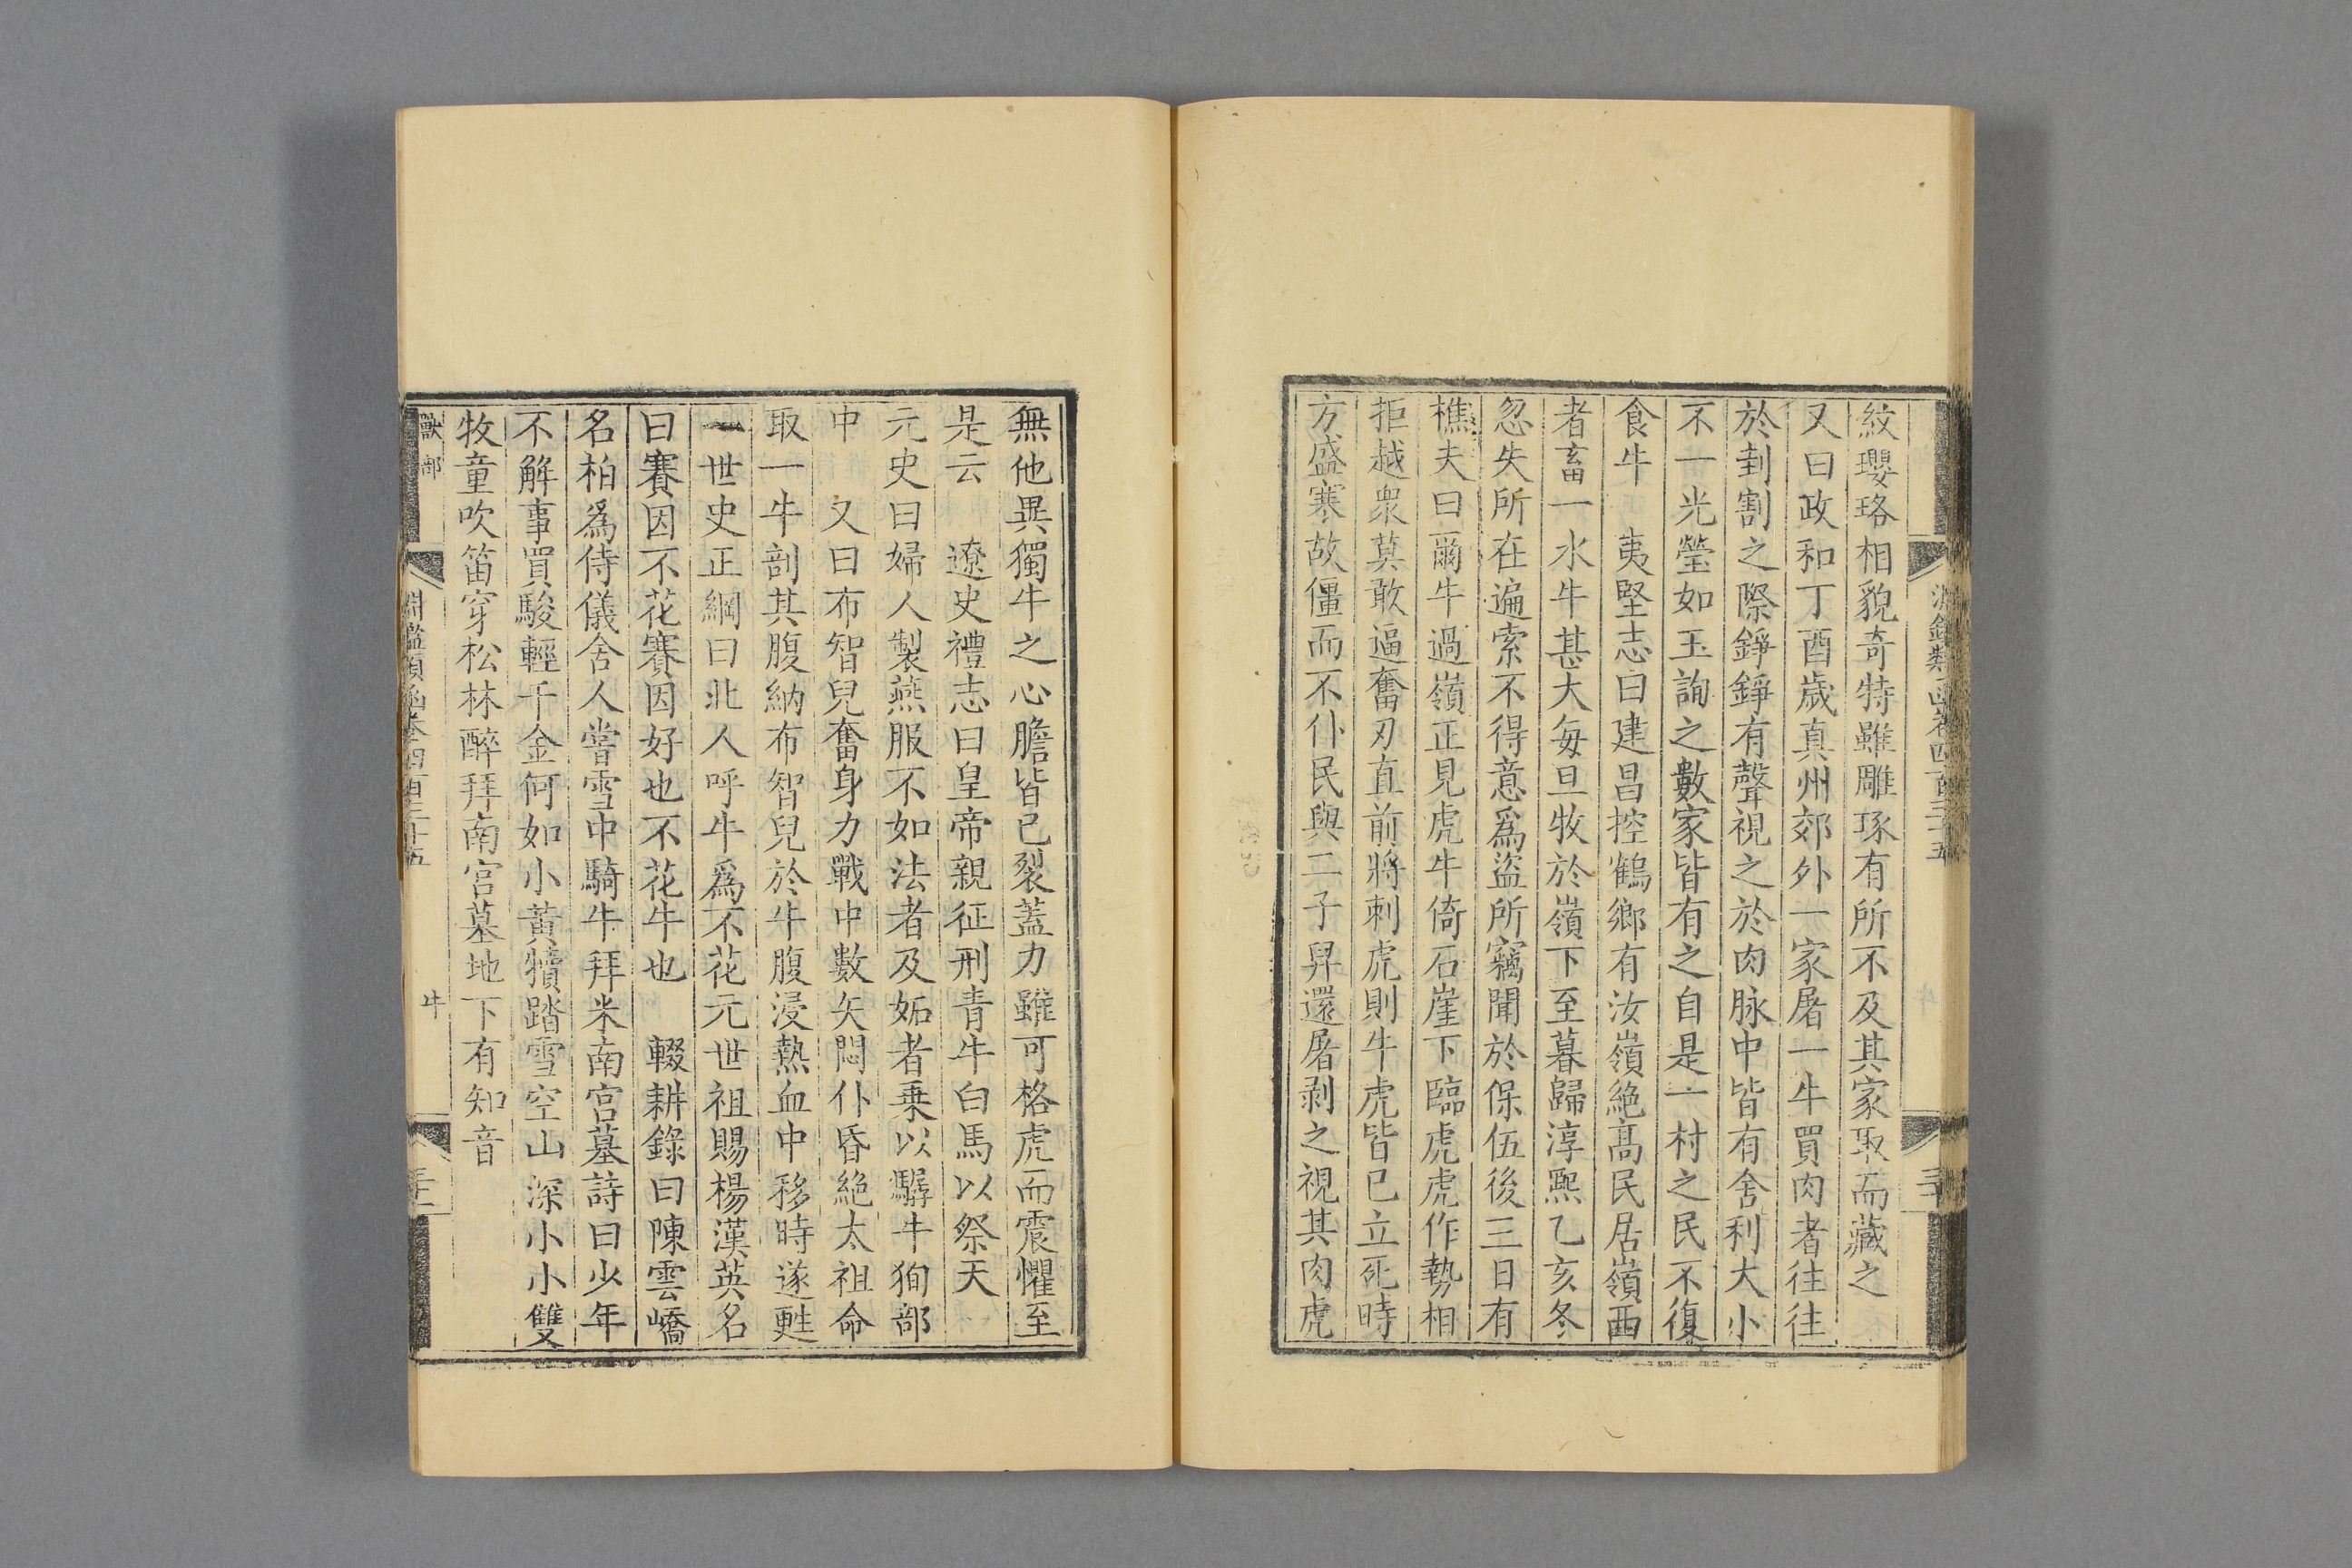 紋瓔珞相貌奇特雖雕琢有所不及其家取而藏之
又曰政和丁酉歲真州郊外一家屠一牛買肉者往往
於刲割之際錚錚有聲視之於肉脉中皆有舍利大小
不一光瑩如玉詢之數家皆有之自是一村之民不復
食牛　夷堅志曰建昌控鶴鄉有汝嶺絶高民居嶺西
者畜一水牛甚大每旦牧於嶺下至暮歸淳熙乙亥冬
忽失所在遍索不得意爲盜所竊聞於保伍後三日有
樵夫曰爾牛過嶺正見虎牛倚石崖下臨虎虎作勢相
拒越衆莫敢逼奮刃直前將刺虎則牛虎皆已立死時
方盛寒故僵而不仆民與二子舁還屠剥之視其肉虎
無他異獨牛之心膽皆已裂蓋力雖可格虎而震懼至
是云　遼史禮志曰皇帝親征刑青牛白馬以祭天
元史曰婦人製燕服不如法者及妬者乗以驏牛狥部
中　又曰布智兒奮身力戰中數矢悶仆昏絶太祖命
取一牛剖其腹納布智兒於牛腹浸熱血中移時遂甦
一世史正綱曰北人呼牛爲不花元世祖賜楊漢英名
曰賽因不花賽因好也不花牛也　輟耕錄曰陳雲嶠
名柏爲侍儀舍人嘗雪中騎牛拜米南宮墓詩曰少年
不解事買駿輕千金何如小黃犢踏雪空山深小小雙
牧童吹笛穿松林醉拜南宮墓地下有知音
獸部
淵鑑類函卷四百三十五
牛